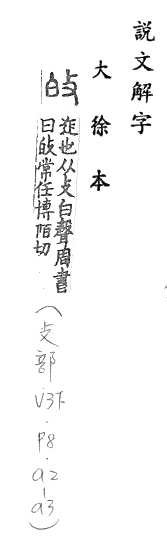 說文解字
大徐本
𢻫
迮也从攴白聲周書
曰𢻫常任博陌切
(攴部.V3下.P8.a2-a3)